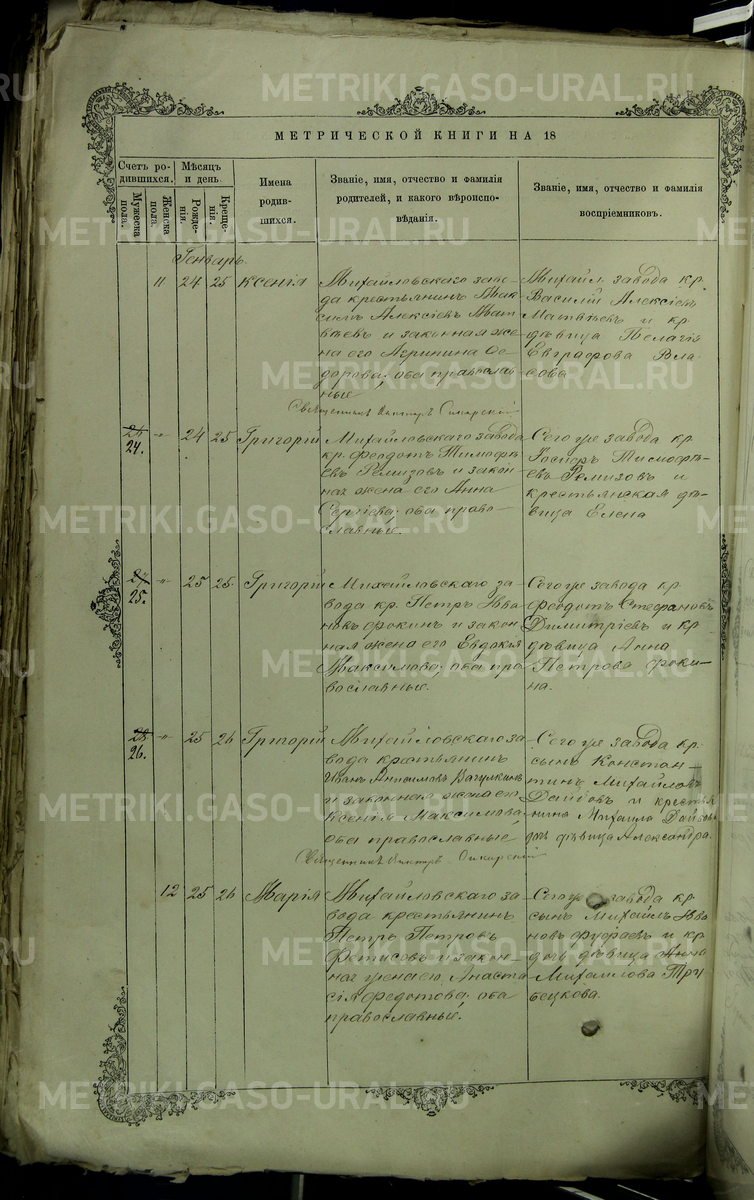 METRIKI.GASO-URAL.RU
МЕТРИЧЕСКОЙ КНИГИ НА 18
Счетъ ро-
дившихся.
Мужеска
пола.
Женска
пола.
Мѣсяцъ
и день.
Рожде-
нія.
Креще-
нія.
Имена
родив-
шихся.
Званіе, имя, отчество и фамилія
родителей, и какого вѣроиспо-
вѣданія.
Званіе, имя, отчество и фамилія
воспріемниковъ.
Генварь
11 24 25 Ксенія
Михайловскаго заво-
да крестьянинъ Мак-
симъ Алексѣевъ Мат-
вѣевъ и законная же-
на его Агрипина Ѳе-
дорова; оба православ-
ные
Михайл. завода кр.
Василій Алексѣевъ
Матвѣевъ и кр.
дѣвица Пелагія
Евграфова Вла-
сова
Священникъ Викторъ
24. -„- 24 25 Григорій
Михайловскаго завода
кр. Ѳеодотъ Тимоѳѣ-
евъ Ремизовъ и закон-
ная жена его Анна
Сергіева; оба право-
славные.
Сего же завода кр.
Тимоѳѣ-
евъ Ремизовъ и
крестьянская дѣ-
вица Елена
25. -„- 25 25 Григорій
Михайловскаго за-
вода кр. Петръ Ива-
новъ Фокинъ и закон-
ная жена его Евдокія
Максимова; оба пра-
вославные.
Сего же завода кр.
Ѳеодотъ Стефановъ
Димитріевъ и кр.
дѣвица Анна
Петрова Фоки-
на.
26. -„- 25 26 Григорій
Михайловскаго за
вода крестьянинъ
Иванъ Вагулкинъ
и законная жена его
Ксенія Максимова
оба православные
Сего же завода кр.
сынъ Констан-
тинъ Михайловъ
и кресть
янина Михаила
доч. дѣвица Александра.
Священникъ Викторъ
12 25 26 Марія
Михайловскаго за
вода крестьянинъ
Петръ Петровъ
Фетисовъ и закон-
ная жена его Анаста
сія Ѳедотова; оба
православные.
Сего же завода кр.
сынъ Михаилъ Ива
новъ и кр.
дочь дѣвица Анна
Михаилова Тру
бецкова.